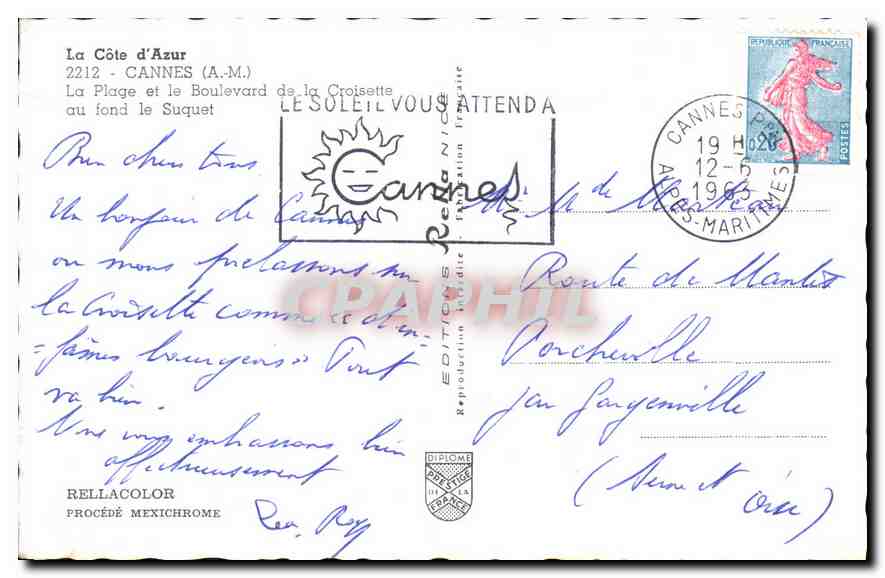 La Côte d'Azur
2212 - CANNES (A.-M.)
La Plage et le Boulevard de la Croisette
au fond le Suquet
LE SOLEIL VOUS ATTEND A
Cannes
CANNES PPAL
19 H
12-5
1963
ALPES-MARITIMES
REPUBLIQUE FRANÇAISE
0,20
POSTES
Bien chers tous
Un bonjour de Cannes
ou nous prelassons sur
la Croisette comme « d'in-
=fâmes bourgeois » Tout
va bien.
Nous vous embrassons bien
affectueusement
EDITIONS Rella NICE
Reproduction interdite - Fabrication Française
Mr Me de
Route de Mantes
Porcheville
par Gargenville
(Seine et
Oise)
DIPLOME
PRESTIGE
DE LA
FRANCE
RELLACOLOR
PROCÉDÉ MEXICHROME
CPAPHIL